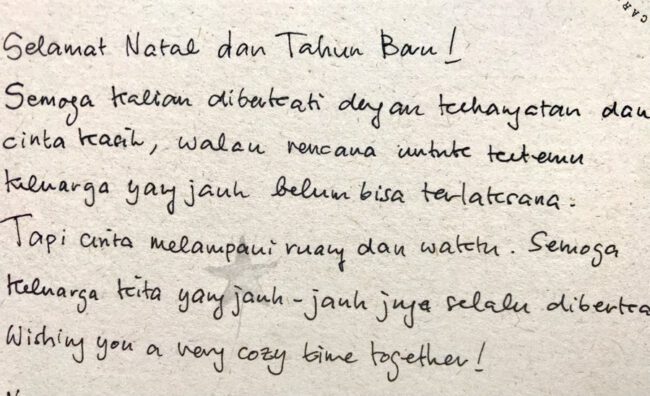 CAR
Selamat Natal dan Tahun Baru!
Semoga kalian diberkati dengan kehangatan dan
cinta kasih, walau rencana untuk ketemu
keluarga yang jauh belum bisa terlaksana.
Tapi cinta melampaui ruang dan waktu. Semoga
keluarga kita yang jauh-jauh juga selalu diberka
Wishing you a very cozy time together!